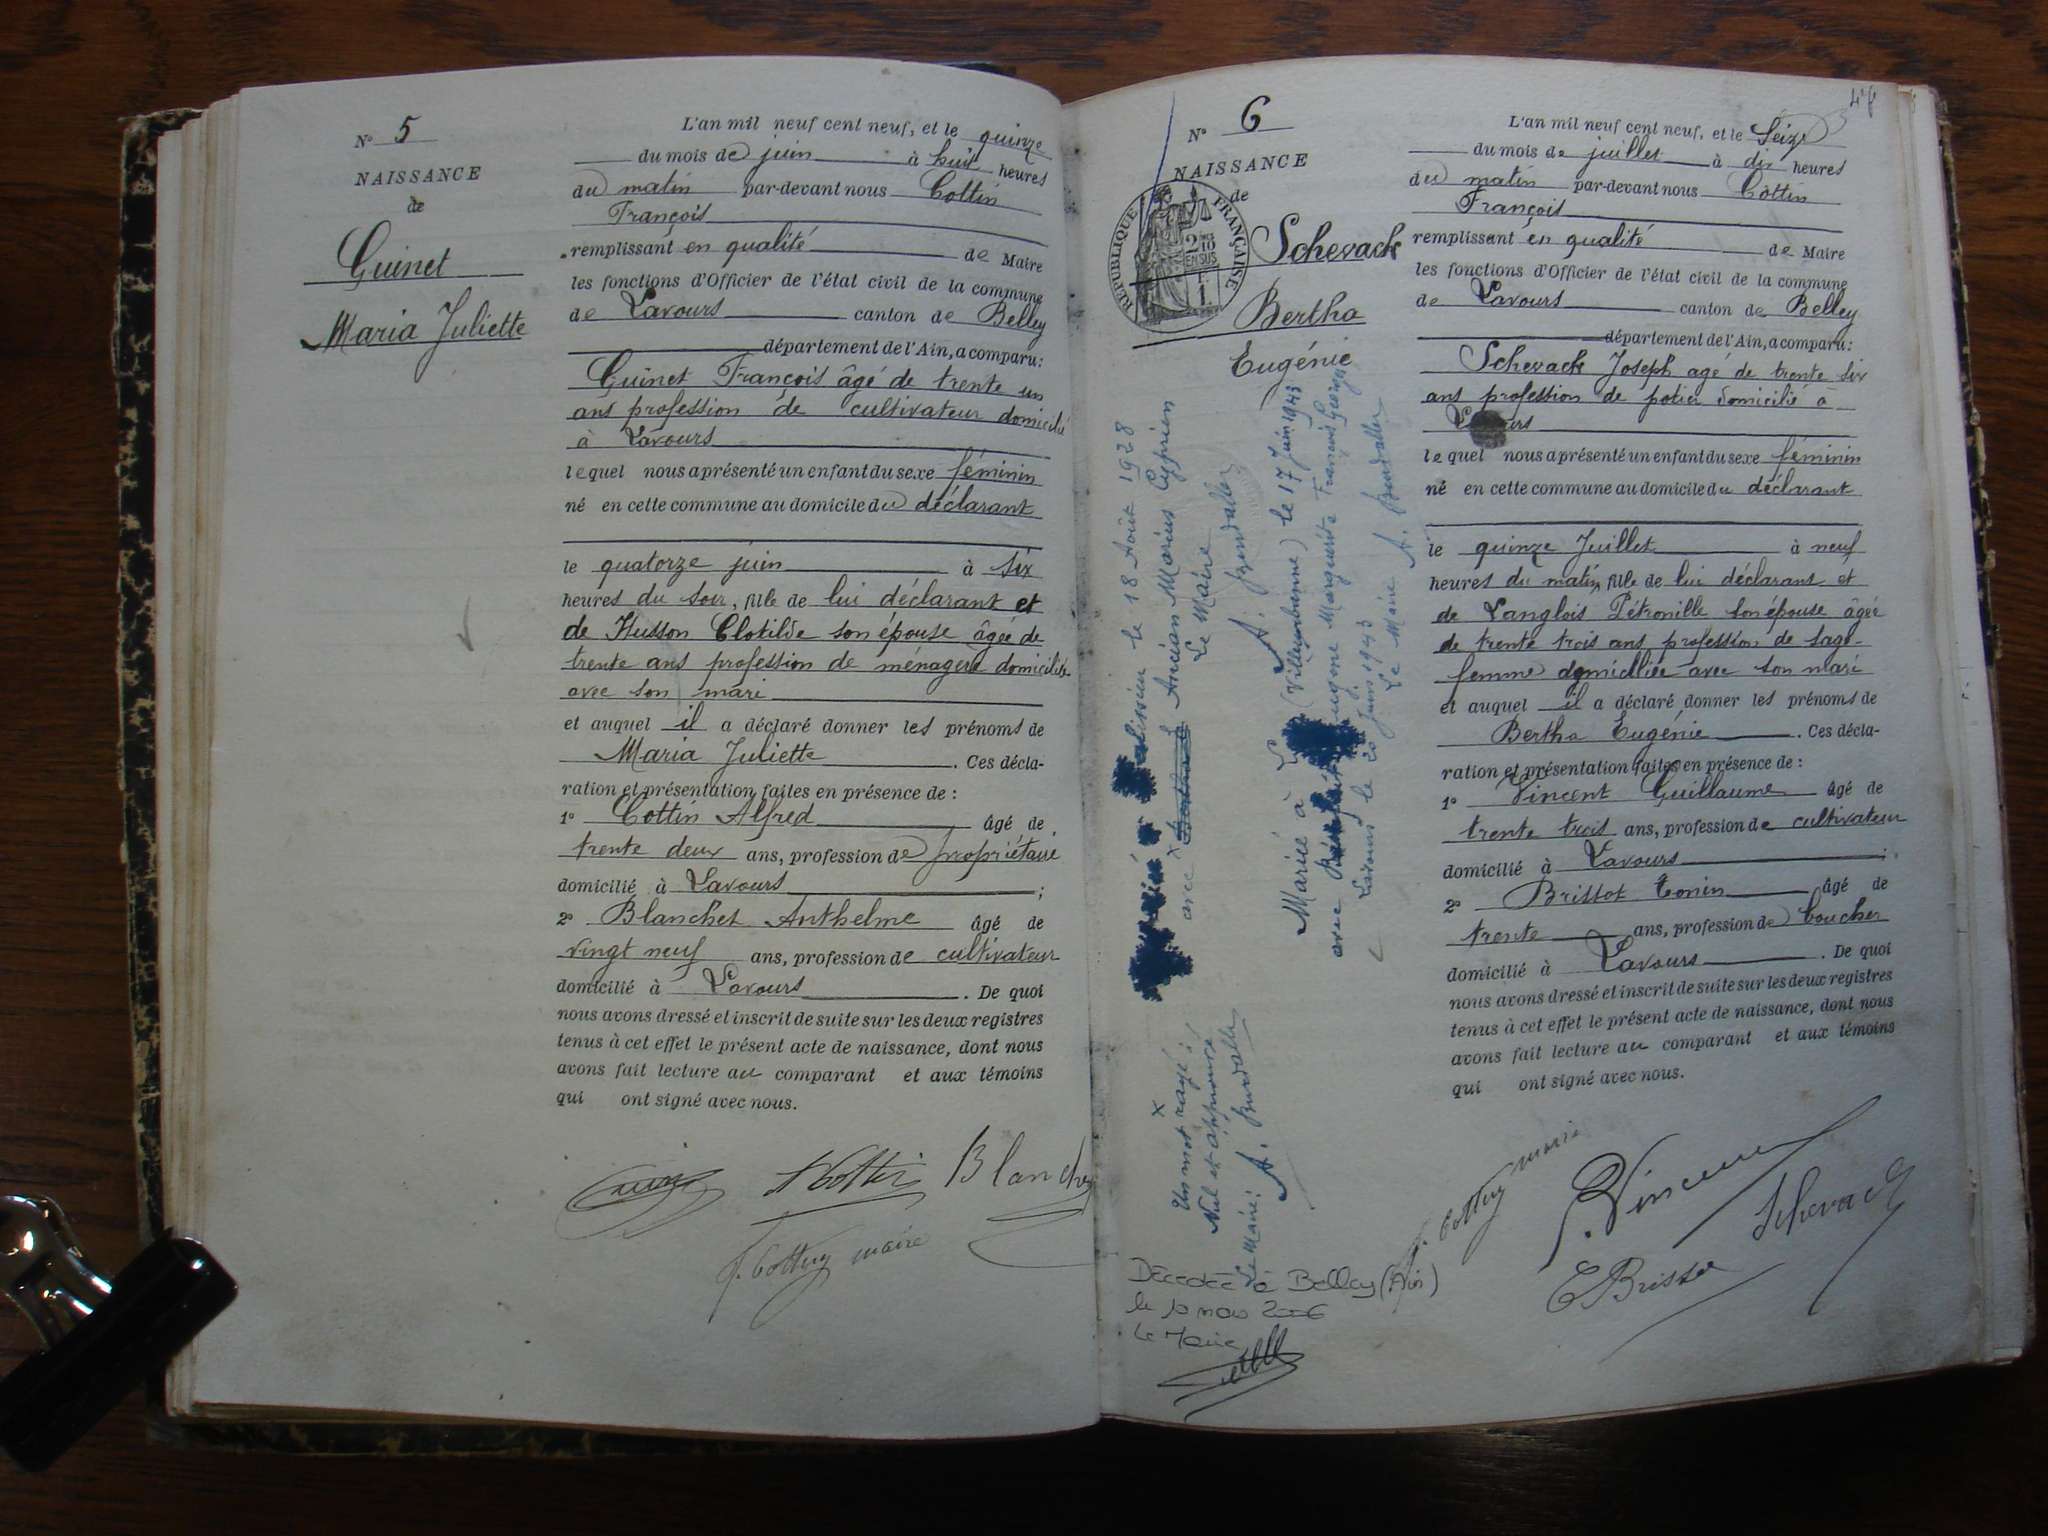 N° 5
NAISSANCE
de
Guinet
Maria Juliette
L'an mil neuf cent neuf, et le quinze
du mois de juin à huit heures
du matin par-devant nous Cottin
François
remplissant en qualité de Maire
les fonctions d'Officier de l'état civil de la commune
de Lavours canton de Belley
département de l'Ain, a comparu:
Guinet François âgé de trente un
ans profession de cultivateur domicilié
à Lavours
lequel nous a présenté un enfant du sexe féminin
né en cette commune au domicile du déclarant
le quatorze juin à six
heures du soir, fille de lui déclarant et
de Husson Clotilde son épouse âgée de
trente ans profession de ménagère domiciliée
avec son mari
et auquel il a déclaré donner les prénoms de
Maria Juliette. Ces décla-
ration et présentation faites en présence de :
1° Cottin Alfred âgé de
trente deux ans, profession de propriétaire
domicilié à Lavours ;
2° Blanchet Anthelme âgé de
vingt neuf ans, profession de cultivateur
domicilié à Lavours. De quoi
nous avons dressé et inscrit de suite sur les deux registres
tenus à cet effet le présent acte de naissance, dont nous
avons fait lecture au comparant et aux témoins
qui ont signé avec nous.
A Cottin Blanchet
F. Cottin maire
N° 6
NAISSANCE
de
REPUBLIQUE FRANÇAISE
2/10
EN SUS
1 F.
Schevack
Bertha
Eugénie
le 18 Août 1928
avec Ancian Marius Cyprien
Le Maire
Mariée à (Villeurbanne) le 17 juin 1943
avec Eugene Marguerite François Georges
Lavours le 20 Juin 1943
Le Maire
x Un mot rayé :
Nul et approuvé
Le Maire :
Décédée à Belley (Ain)
le 10 mars 2006
Le Maire
L'an mil neuf cent neuf, et le Seize
du mois de juillet à dix heures
du matin par-devant nous Cottin
François
remplissant en qualité de Maire
les fonctions d'Officier de l'état civil de la commune
de Lavours canton de Belley
département de l'Ain, a comparu:
Schevack Joseph agé de trente six
ans profession de potier domicilié à
Lavours
lequel nous a présenté un enfant du sexe féminin
né en cette commune au domicile du déclarant
le quinze Juillet à neuf
heures du matin, fille de lui déclarant et
de Langlois Pétronille son épouse âgée
de trente trois ans profession de sage-
femme domiciliée avec son mari
et auquel il a déclaré donner les prénoms de
Bertha Eugénie. Ces décla-
ration et présentation faites en présence de :
1° Vincent Guillaume âgé de
trente trois ans, profession de cultivateur
domicilié à Lavours ;
2° Brissot Tonin âgé de
trente ans, profession de boucher
domicilié à Lavours. De quoi
nous avons dressé et inscrit de suite sur les deux registres
tenus à cet effet le présent acte de naissance, dont nous
avons fait lecture au comparant et aux témoins
qui ont signé avec nous.
F. Cottin maire
Vincent
Schevack